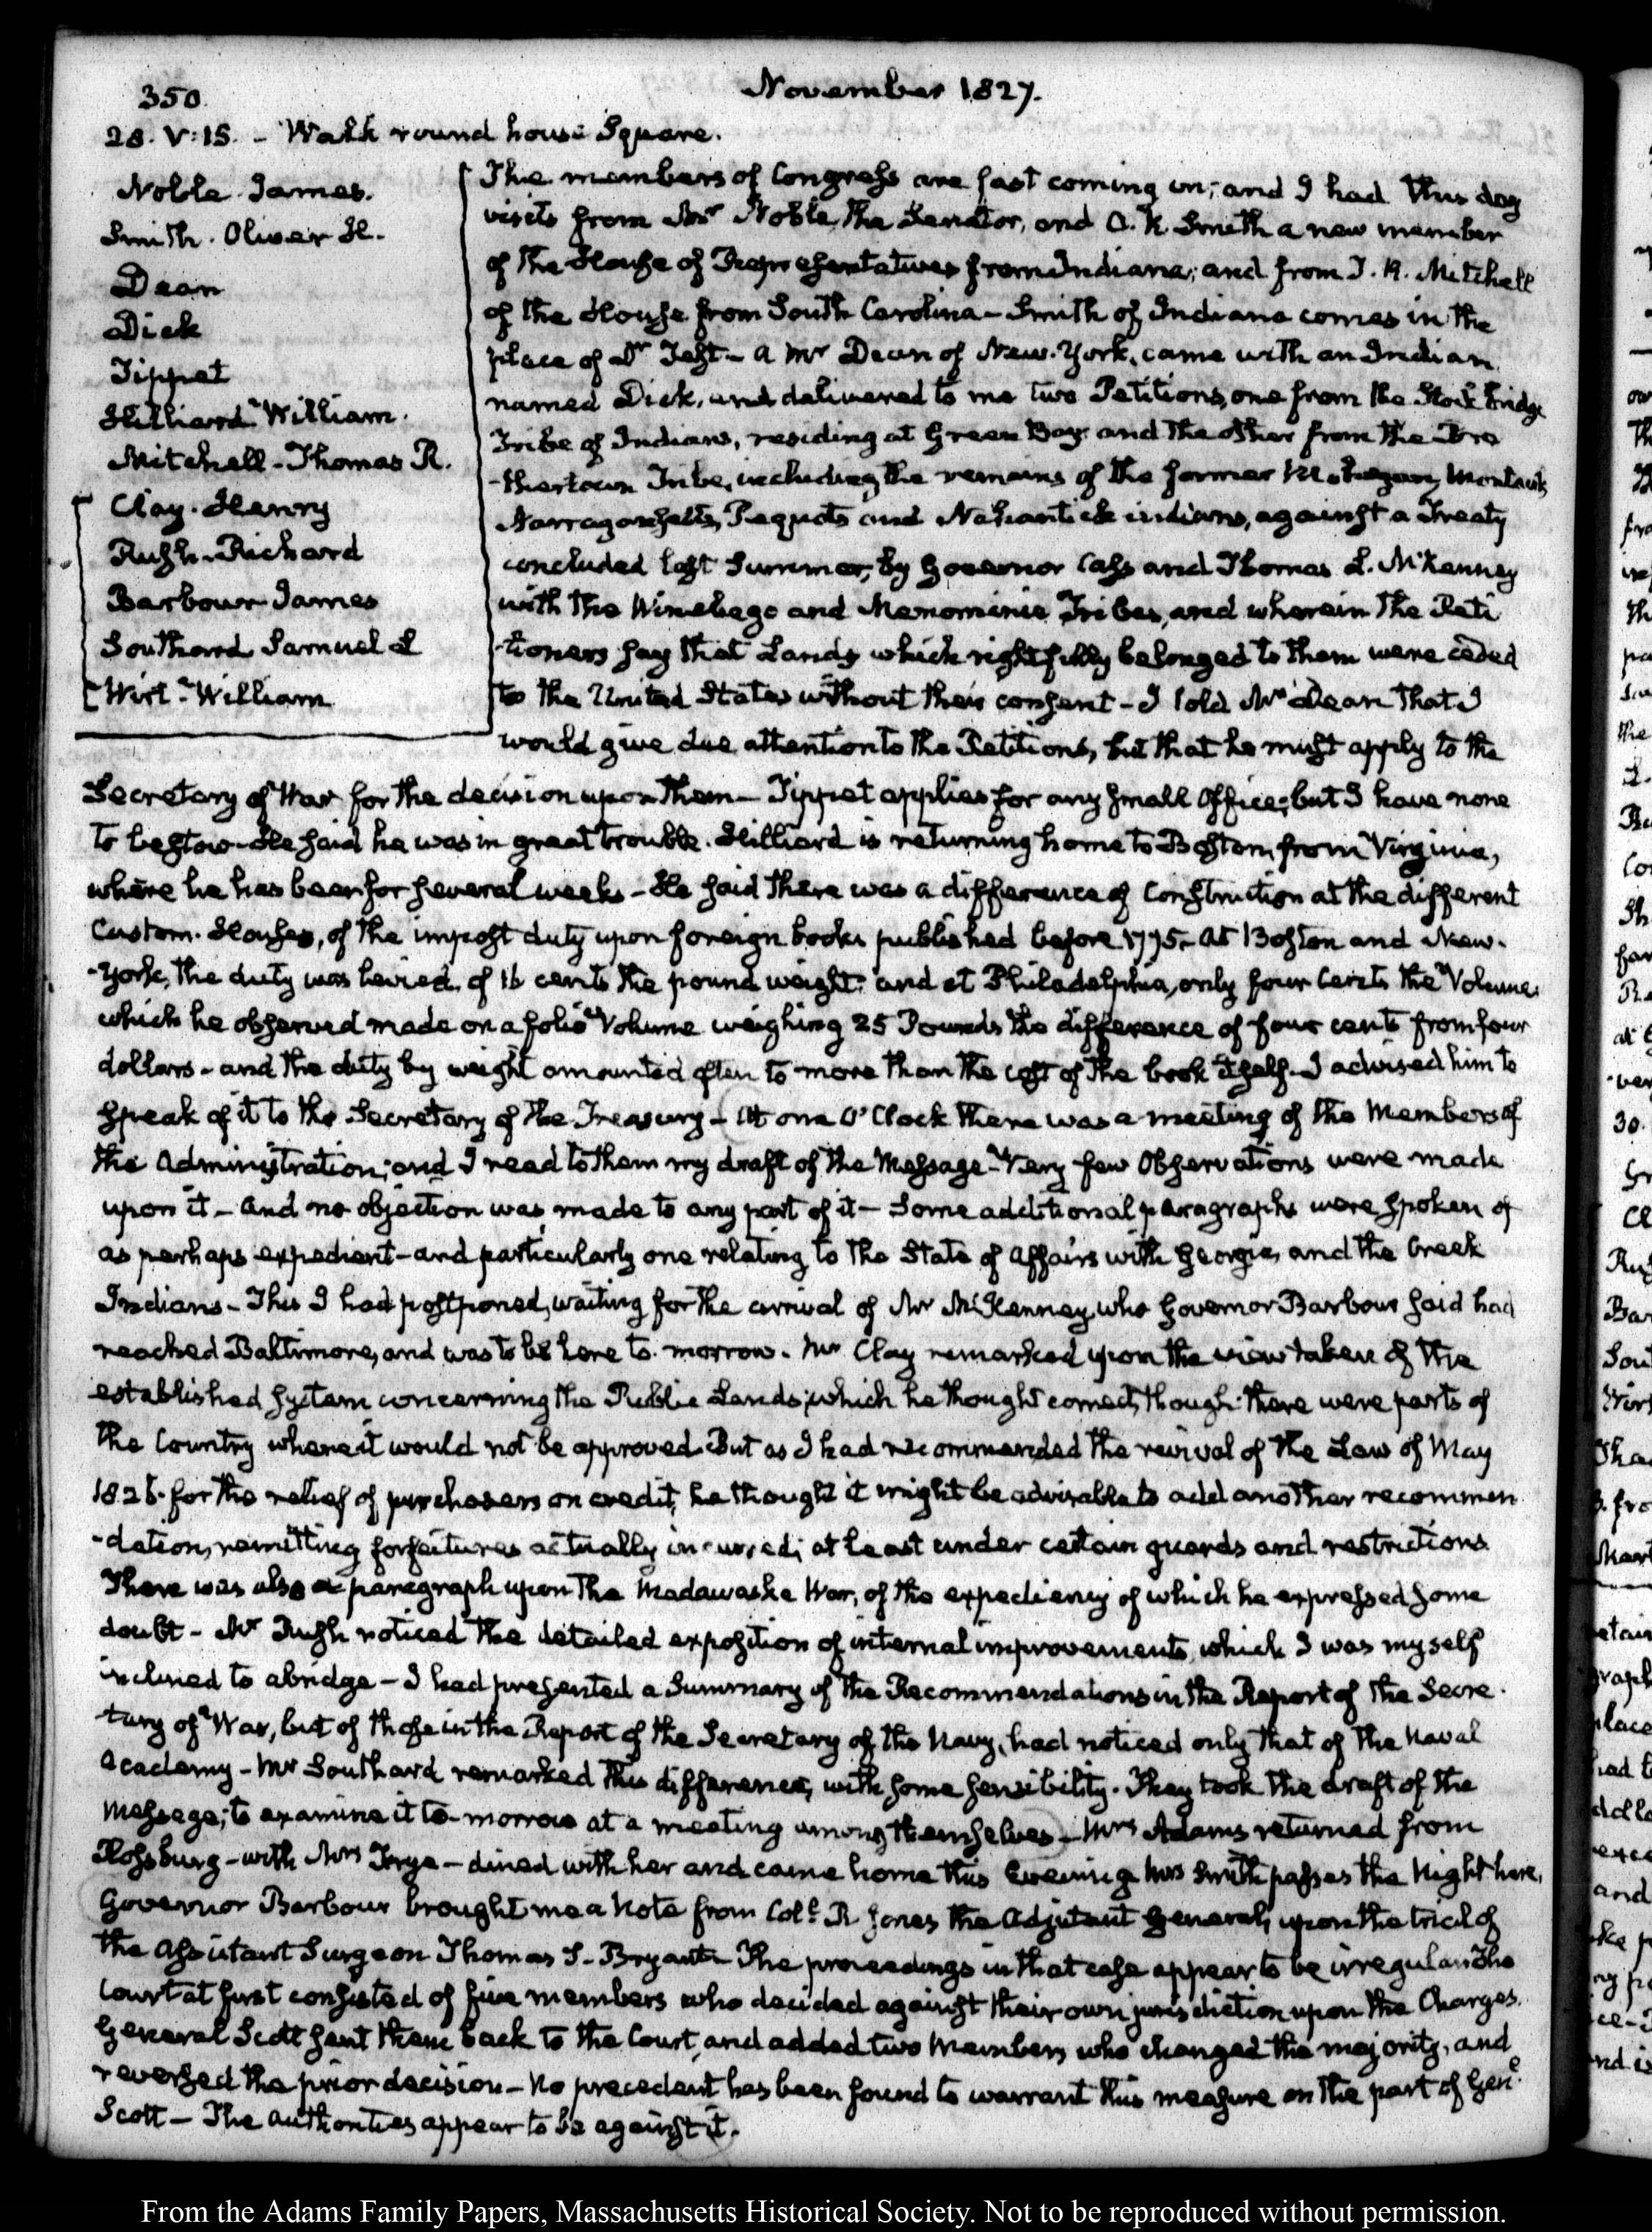 350.
November 1827.
28. V:15. - Walk round house Square.
Noble. James.
Smith. Oliver H.
Dean
Dick
Tippet
Hilliard William.
Mitchell - Thomas R.
Clay. Henry
Rush. Richard
Barbour James
Southard Samuel L
Wirt - William
The members of Congress are fast coming in; and I had this day
visits from Mr Noble, the Senator, and O. H. Smith a new member
of the House of Representatives from Indiana; and from T. R. Mitchell
of the House from South Carolina - Smith of Indiana comes in the
place of Dr Test - a Mr Dean of New-York, came with an Indian
named Dick, and delivered to me two Petitions, one from the Stock bridge
Tribe of Indians, residing at Green Bay and the other from the Bro
-thertown Tribe, including the remains of the former Mohegan, Montauk
Narragansetts, Pequots and Nahantick indians, against a Treaty
concluded last Summer, by Governor Cass and Thomas L. McKenney
with the Winebago and Menominie Tribes, and wherein the Peti
-tioners say that Lands which rightfully belonged to them were ceded
to the United States without their consent - I told Mr Dean that I
would give due attention to the Petitions, but that he must apply to the
Secretary of War for the decision upon them - Tippet applies for any small Office; but I have none
to bestow - He said he was in great trouble. Hilliard is returning home to Boston, from Virginia,
where he has been for several weeks - He said there was a difference of Construction at the different
Custom-Houses, of the impost duty upon foreign books published before 1775. At Boston and New-
-York, the duty was levied, of 16 cents the pound weight: and at Philadelphia, only four Cents the Volume:
which he observed made on a folio Volume weighing 25 Pounds the difference of four cents from four
dollars - and the duty by weight amounted often to more than the cost of the book itself. I advised him to
speak of it to the Secretary of the Treasury - At one O'Clock there was a meeting of the Members of
the Administration; and I read to them my draft of the Message - Very few Observations were made
upon it - And no objection was made to any part of it - Some additional paragraphs were spoken of
as perhaps expedient - and particularly one relating to the State of affairs with Georgia, and the Creek
Indians - This I had postponed, waiting for the arrival of Mr McKenney, who Governor Barbour said had
reached Baltimore, and was to be here to-morrow. Mr Clay remarked upon the view taken of the
established system concerning the Public Lands, which he thought correct, though there were parts of
the Country where it would not be approved. But as I had recommended the revival of the Law of May
1826. for the relief of purchasers on credit, he thought it might be advisable to add another recommen
-dation, remitting forfeitures actually incurred; at least under certain guards and restrictions.
There was also a paragraph upon the Madawaska War, of the expediency of which he expressed some
doubt - Mr Rush noticed the detailed exposition of internal improvements, which I was myself
inclined to abridge - I had presented a Summary of the Recommendations in the Report of the Secre-
tary of War, but of those in the Report of the Secretary of the Navy, had noticed only that of the Naval
Academy - Mr Southard remarked this difference, with some sensibility. They took the draft of the
Message; to examine it to-morrow at a meeting among themselves - Mrs Adams returned from
Rossburg - with Mrs Frye - dined with her and came home this Evening Mrs Smith passes the Night here,
Governor Barbour brought me a Note from Coll. R Jones the Adjutant General, upon the trial of
the Assistant Surgeon Thomas S. Bryant. The proceedings in that case appear to be irregular. The
Court at first consisted of five members who decided against their own jurisdiction upon the Charges.
General Scott sent them back to the Court, and added two Members who changed the majority, and
reversed the prior decision - No precedent has been found to warrant this measure on the part of Genl.
Scott - The authorities appear to be against it.
From the Adams Family Papers, Massachusetts Historical Society. Not to be reproduced without permission.